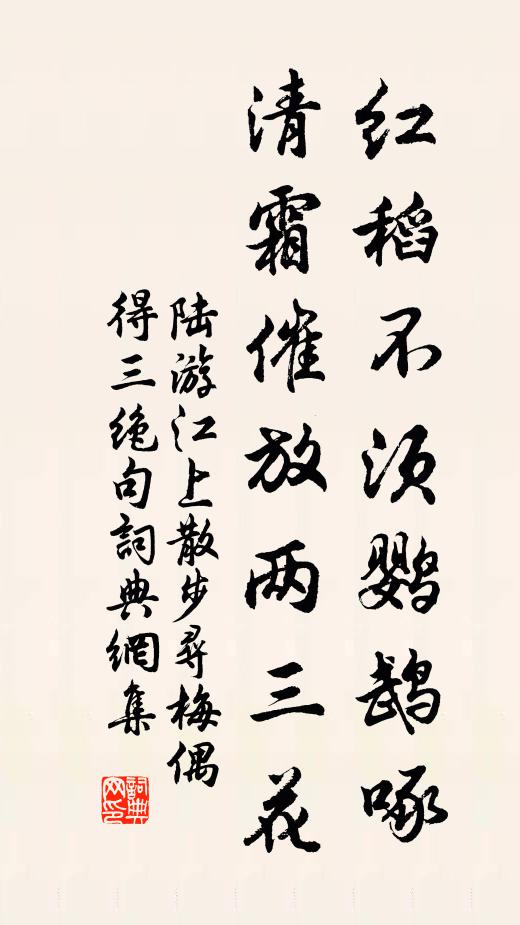 红稻不须鹦鹉啄
清霜催放两三花
陆游江上散步寻梅偶
得三绝句詞典網集
詞典
网印